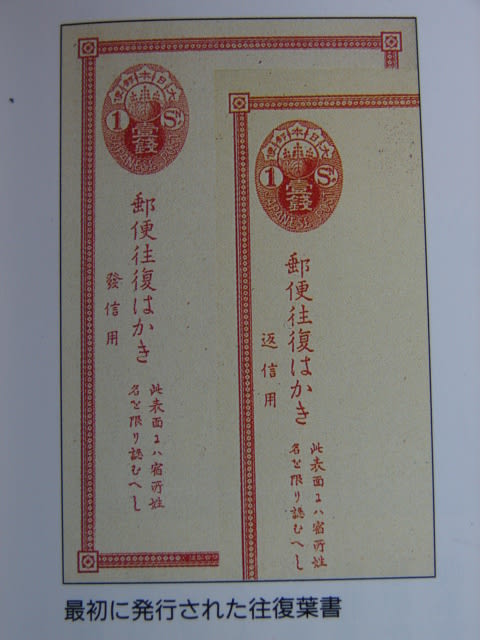 大日本郵便
1 Sn
壹錢
JAPANESE
郵便往復はかき
發信用
此表面ヱハ宿所姓
名を限り認むへし
大日本郵便
1 Sn
壹錢
JAPANESE
郵便往復はかき
返信用
此表面ヱハ宿所姓
名を限り認むへし
最初に発行された往復葉書